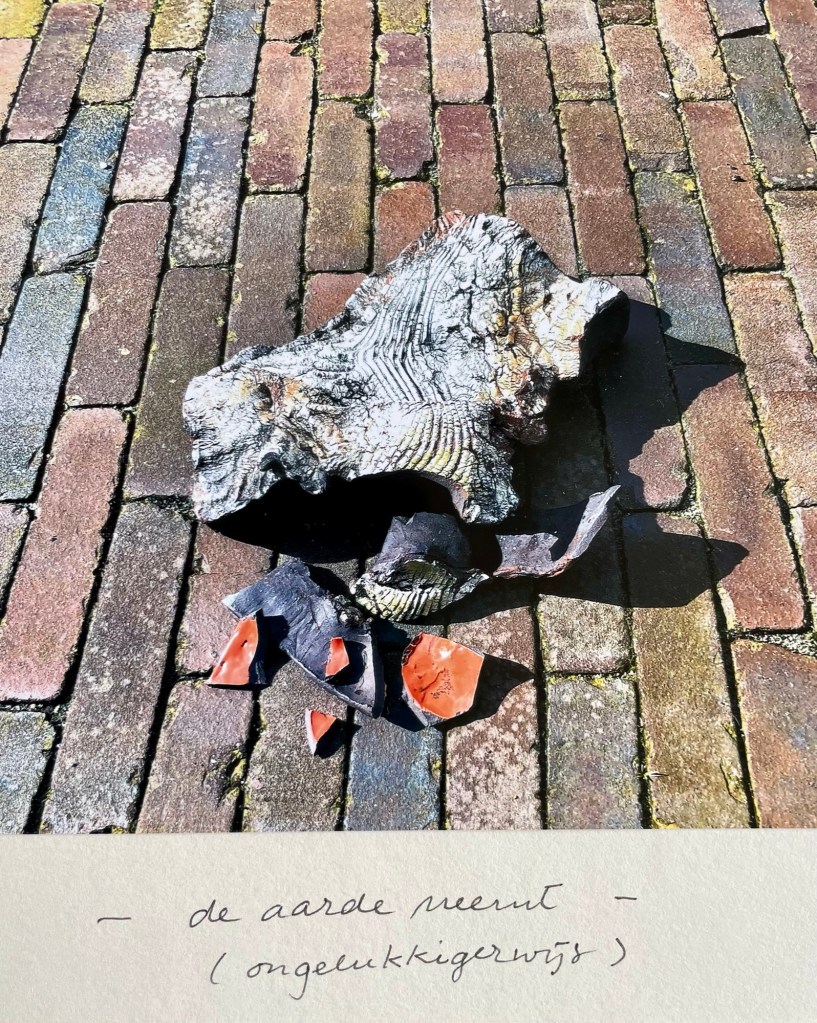 - de aarde neemt -
(ongelukkigerwijs)